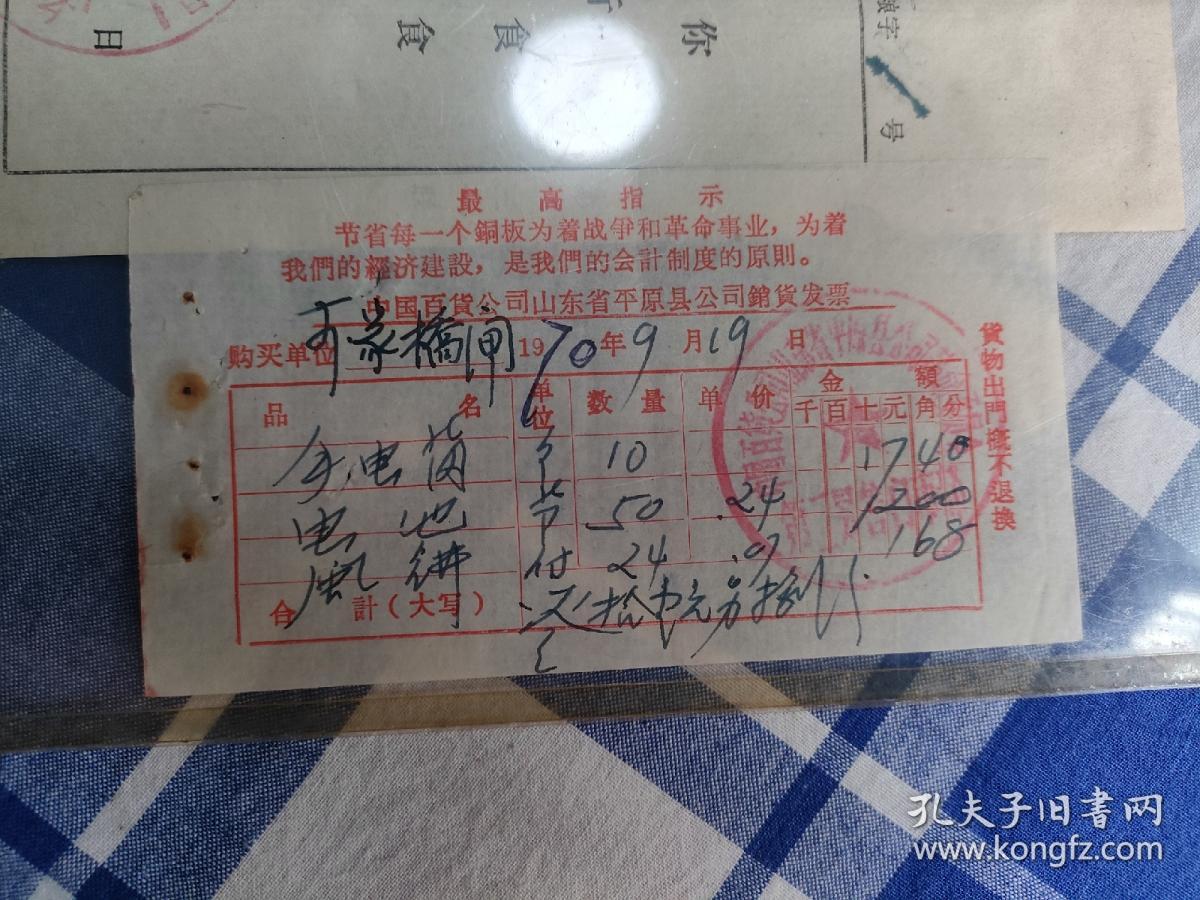 你
食
食
日
字
号
最高指示
节省每一个銅板为着战爭和革命事业，为着
我們的經济建設，是我們的会計制度的原則。
中国百貨公司山东省平原县公司銷貨发票
购买单位 橋闸 1970年9月19日
品名 单位 数量 单价 金額
千百十元角分
手电筒 个 10 1740
电池 节 50 .24 1200
付 24 .07 168
合計（大写）
貨物出門概不退換
孔夫子旧书网
www.kongfz.com